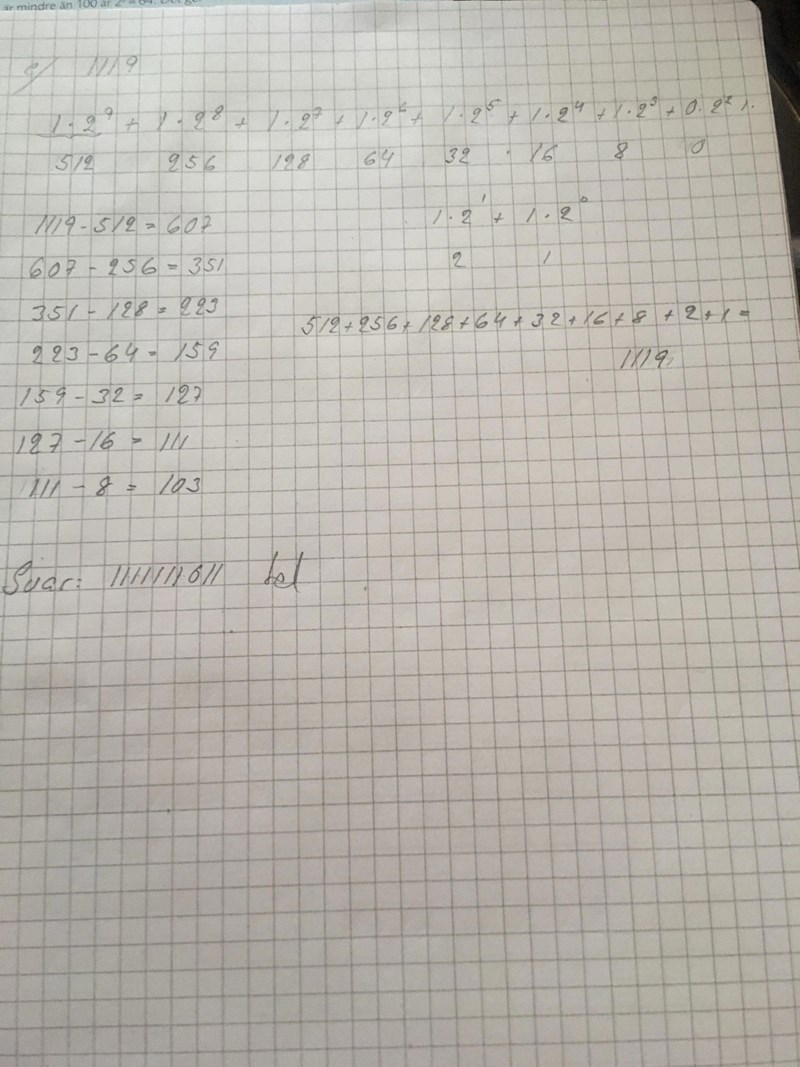 är mindre än 100 är
c/ 1119
1·2⁹ + 1·2⁸ + 1·2⁷ + 1·2⁶ + 1·2⁵ + 1·2⁴ + 1·2³ + 0·2²
512 256 128 64 32 · 16 8 0
1·2¹ + 1·2⁰
2 1
1119 - 512 = 607
607 - 256 = 351
351 - 128 = 223
223 - 64 = 159
159 - 32 = 127
127 - 16 = 111
111 - 8 = 103
512+256+128+64+32+16+8+2+1=
1119
Svar: 1111111011